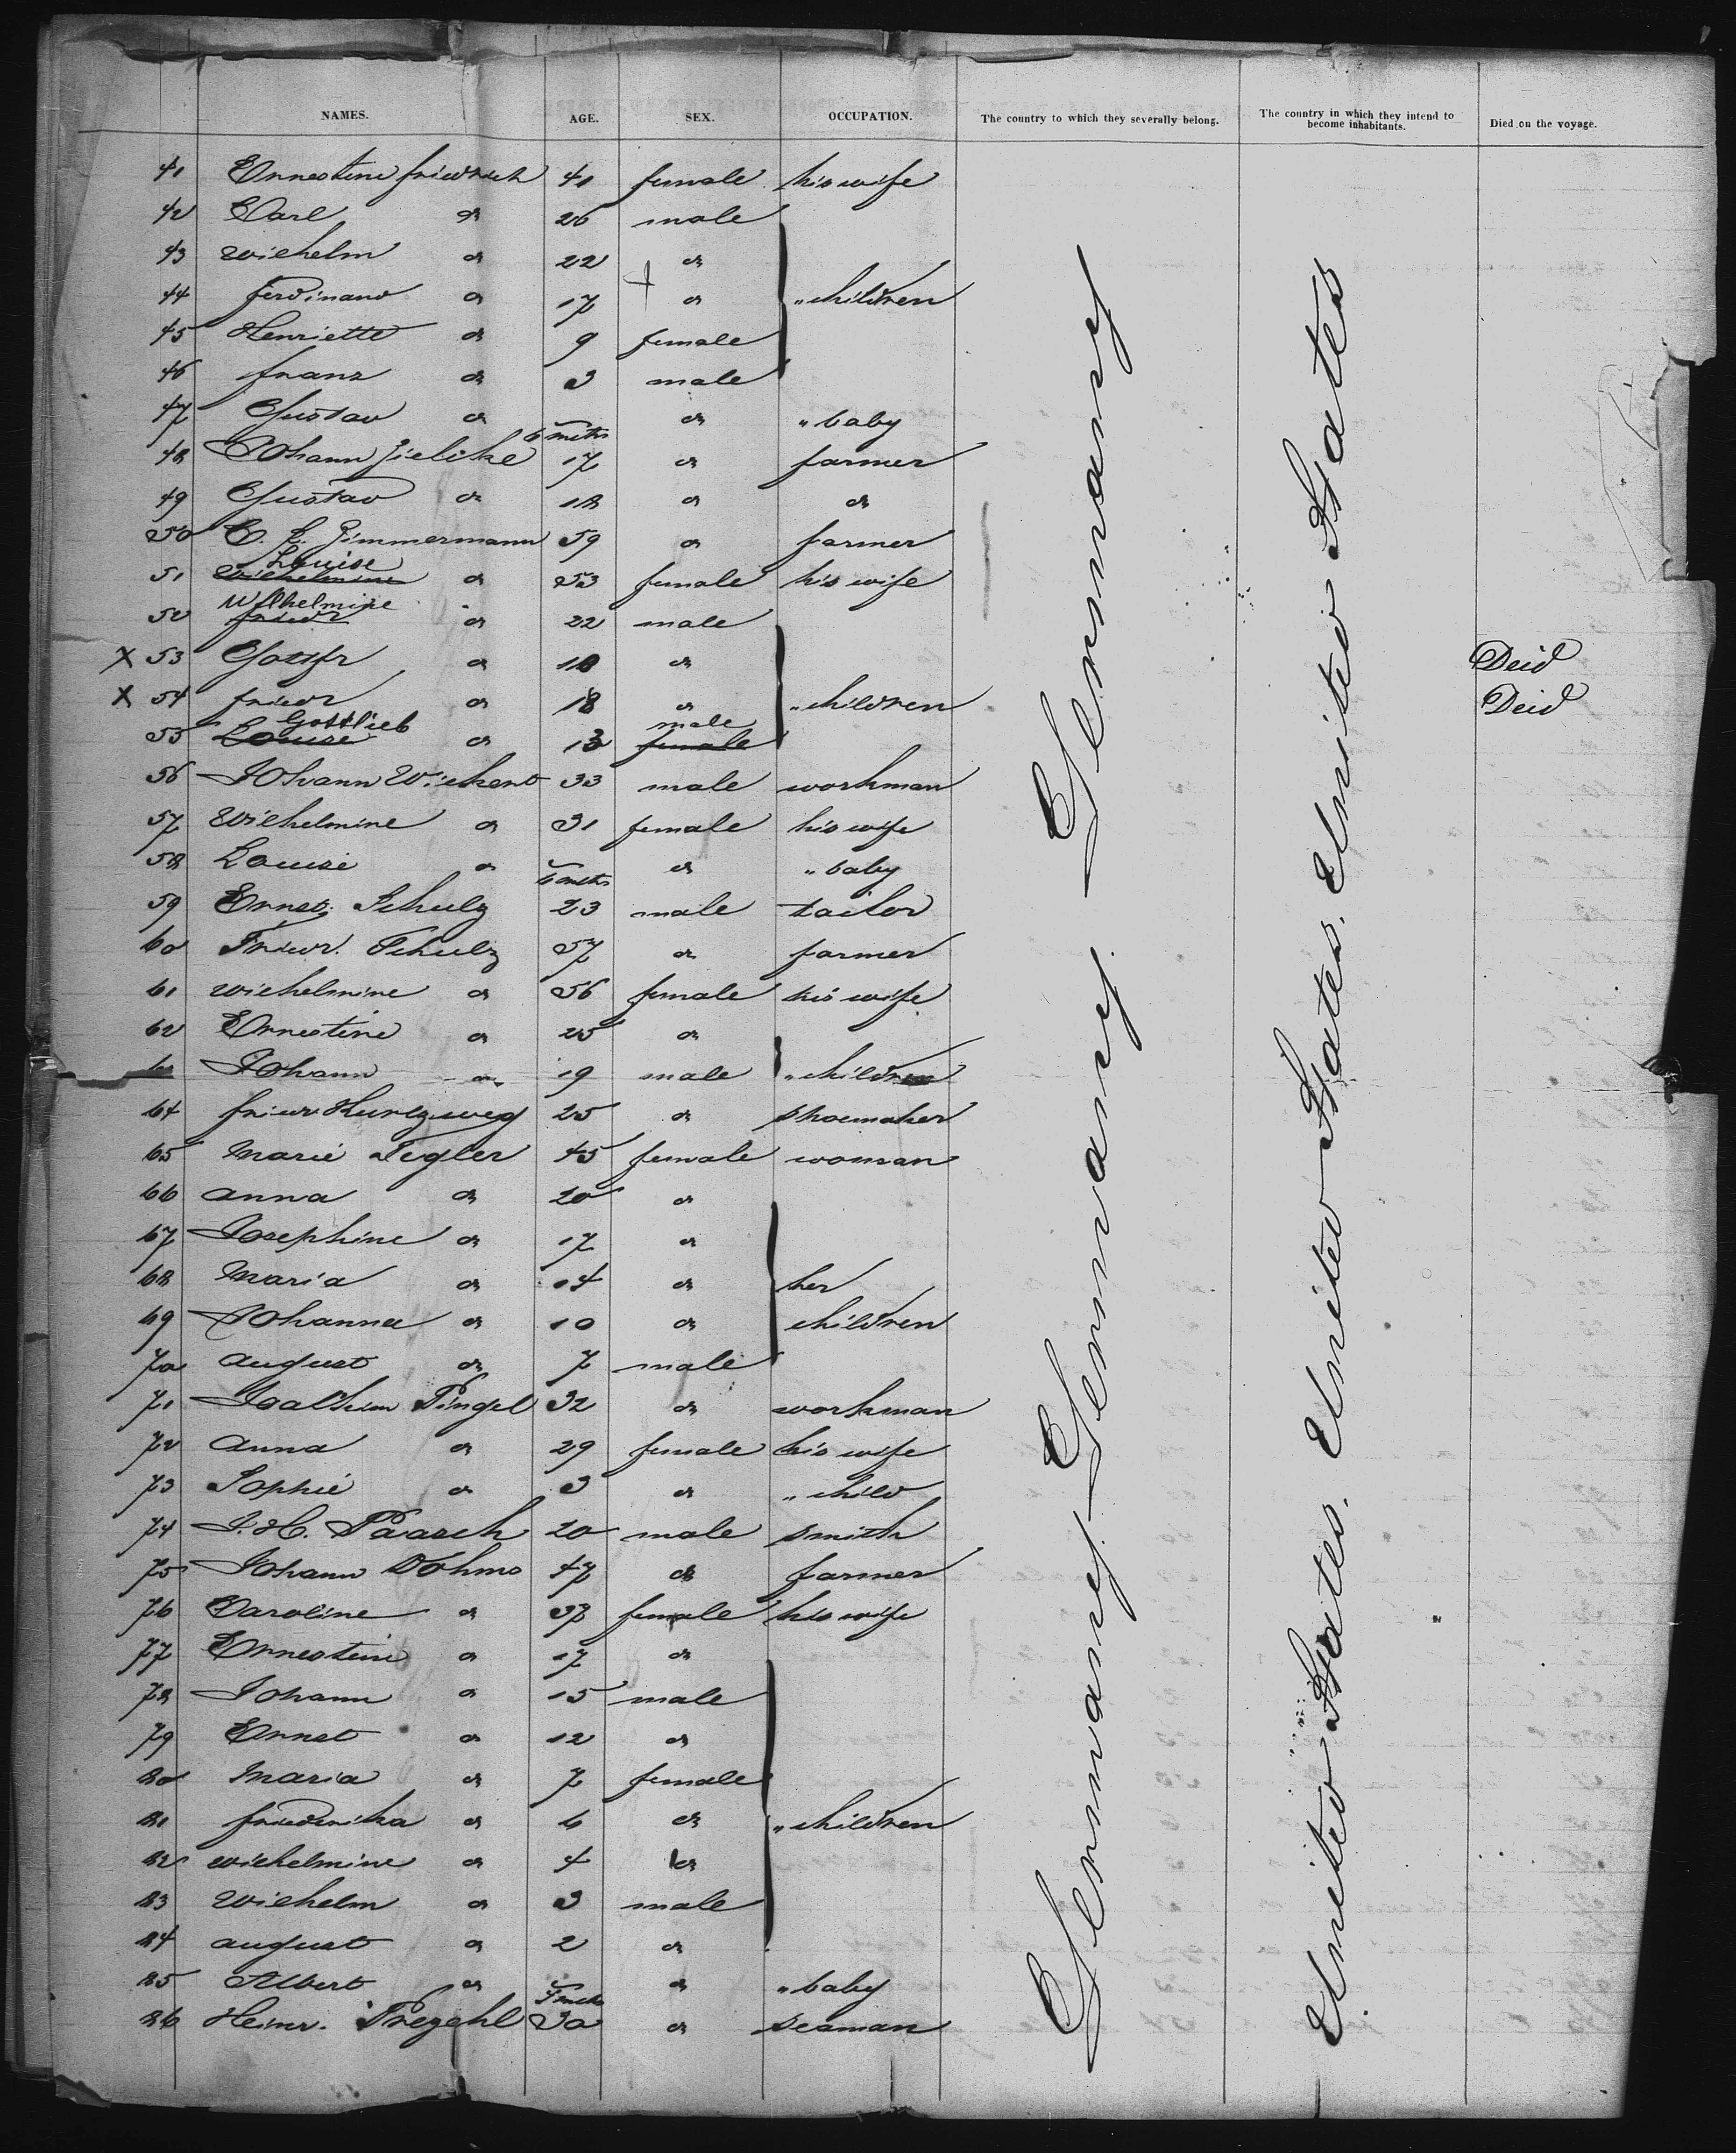 NAMES. AGE. SEX. OCCUPATION. The country to which they severally belong. The country in which they intend to become inhabitants. Died on the voyage.
41 Ernestine Friedrich 41 female his wife
42 Carl do 26 male
43 Wilhelm do 22 do
44 Ferdinand do 17 do " children
45 Henriette do 9 female
46 Franz do 3 male
47 Gustav do 6 mths do " baby
48 Johann Zielike 17 do farmer
49 Gustav do 18 do do
50 C. F. Zimmermann 59 do farmer
51 Wilhelmine Louise do 53 female his wife
52 Friedr Wilhelmine do 22 male
X 53 Gottfr do 18 do Deid
X 54 Friedr do 18 do " children Deid
55 Louise Gottlieb do 13 female male
56 Johann Wickent 33 male workman
57 Wilhelmine do 31 female his wife
58 Louise do 6 mths do " baby
59 Ernst Schulz 23 male tailor
60 Friedr. Schulz 57 do farmer
61 Wilhelmine do 56 female his wife
62 Ernestine do 25 do
Johann do 19 male " children
64 Friedr Kurtzweg 25 do shoemaker
65 Marie Tegler 45 female woman
66 Anna do 20 do
67 Josephine do 17 do
68 Maria do 14 do her
69 Johanna do 10 do children
70 August do 7 male
71 Joachim Pingel 32 do workman
72 Anna do 29 female his wife
73 Sophie do 3 do " child
74 J. H. Paasch 20 male smith
75 Johann Dohms 47 do farmer
76 Caroline do 37 female his wife
77 Ernestine do 17 do
78 Johann do 15 male
79 Ernst do 12 do
80 Maria do 7 female
81 Friederika do 6 do " children
82 Wilhelmine do 4 do
83 Wilhelm do 3 male
84 August do 2 do
85 Albert do mths do " baby
86 Heinr. Pregehl 30 do seaman
Germany Germany Germany
United States. United States. United States